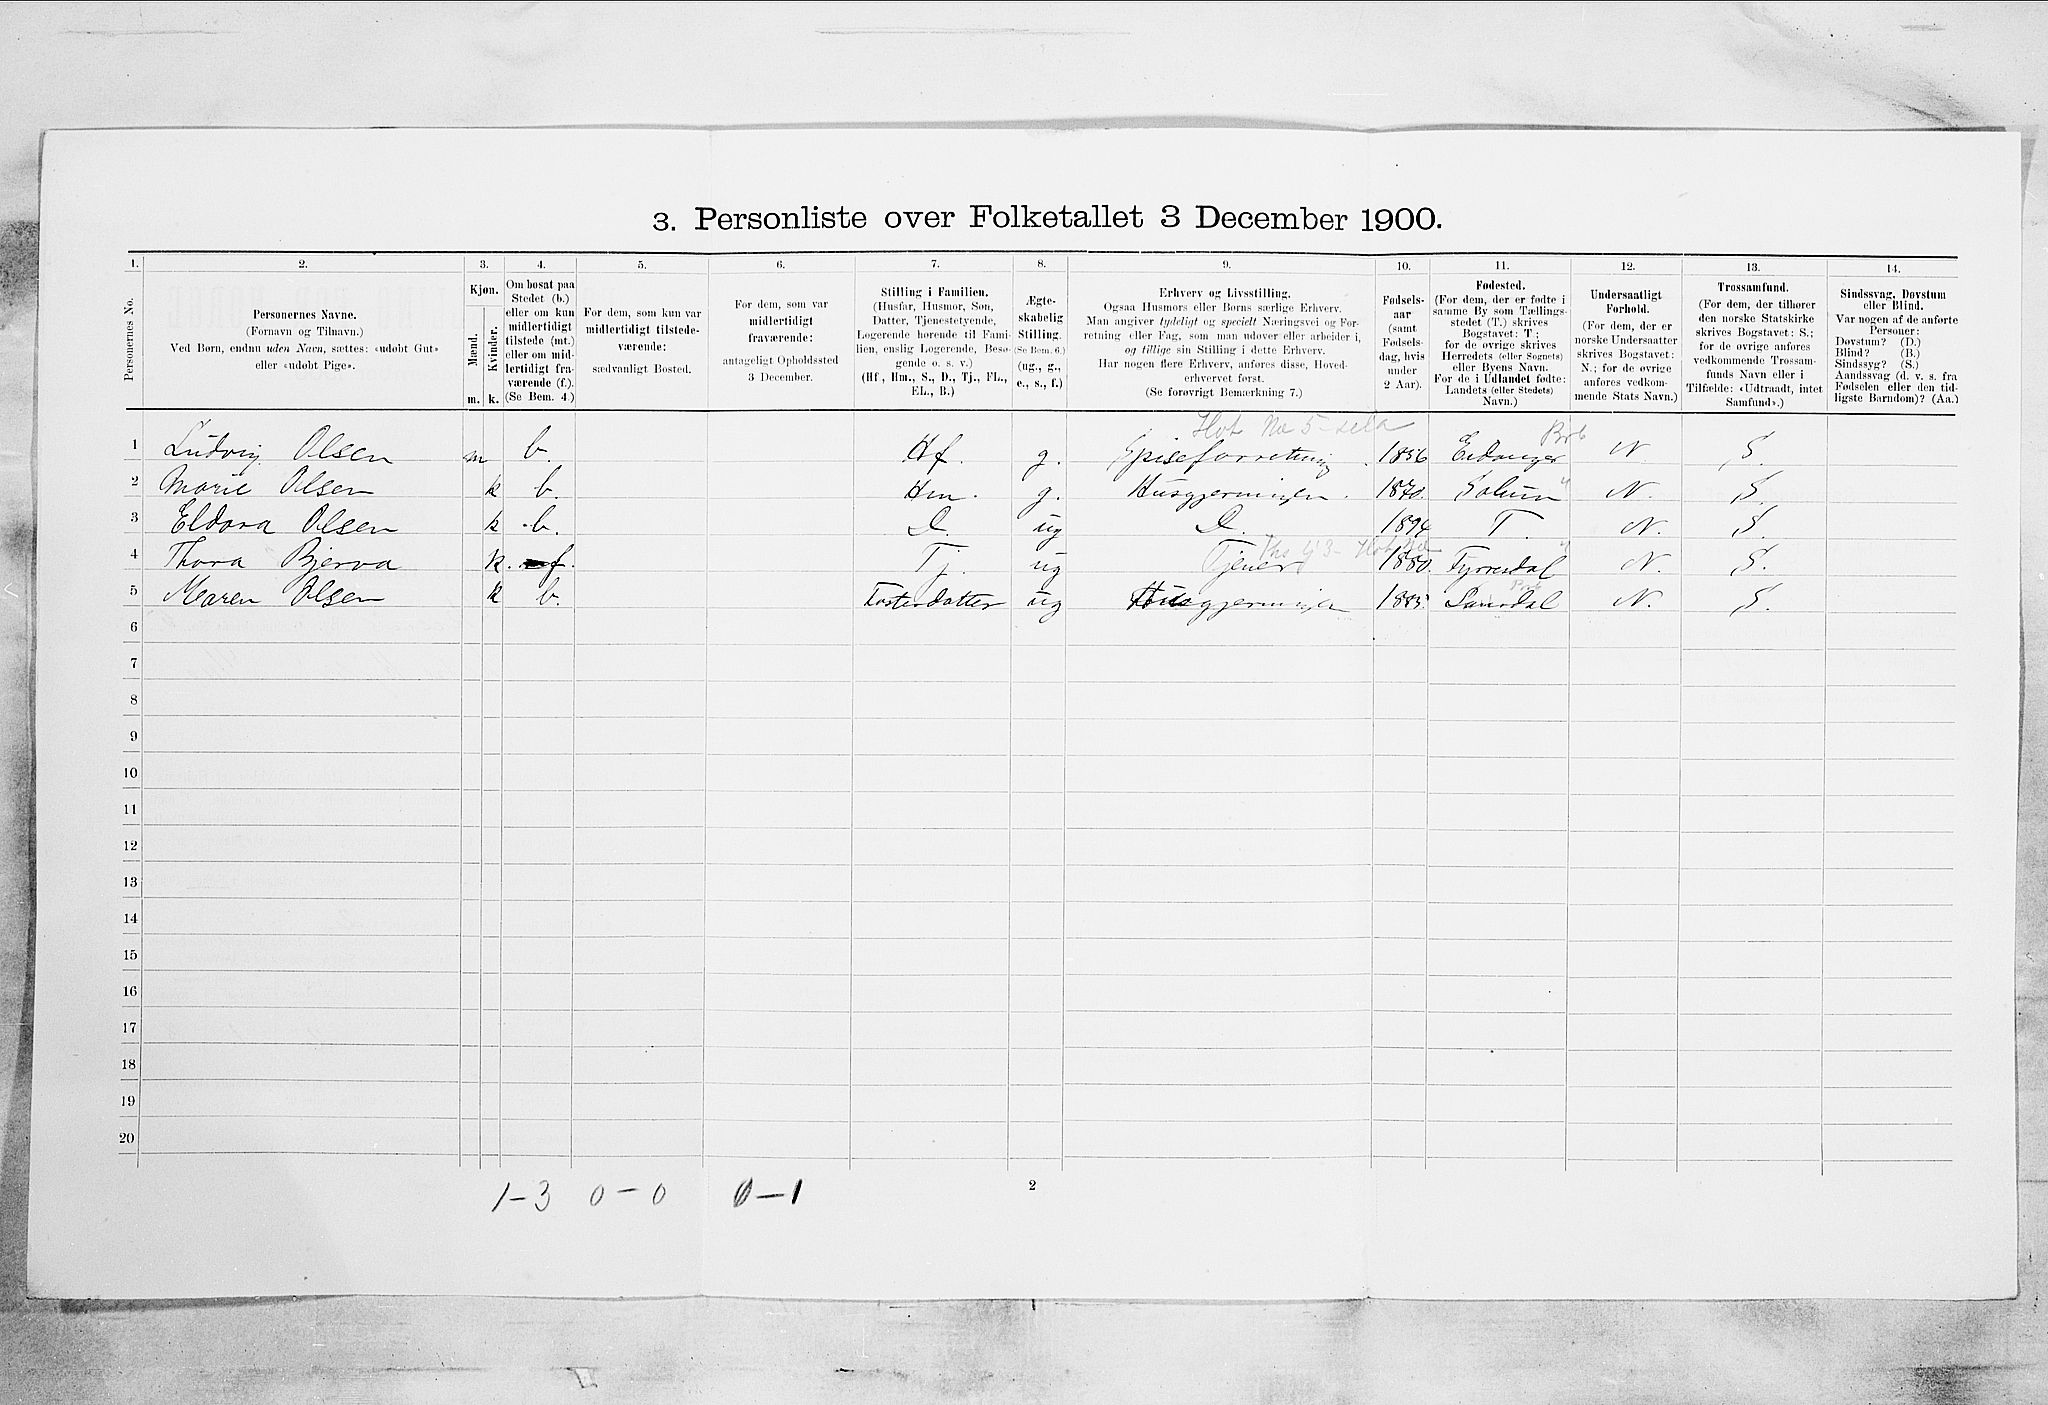 3. Personliste over Folketallet 3 December 1900.
1. 2. 3. 4. 5. 6. 7. 8. 9. 10. 11. 12. 13. 14.
Personernes No.
Personernes Navne.
(Fornavn og Tilnavn.)
Ved Børn, endnu uden Navn, sættes: «udøbt Gut»
eller «udøbt Pige».
Kjøn.
Mænd. Kvinder.
m. k.
Om bosat paa
Stedet (b.)
eller om kun
midlertidigt
tilstede (mt.)
eller om mid-
lertidigt fra-
værende (f.).
(Se Bem. 4.)
For dem, som kun var
midlertidigt tilstede-
værende:
sædvanligt Bosted.
For dem, som var
midlertidigt
fraværende:
antageligt Opholdssted
3 December.
Stilling i Familien.
(Husfar, Husmor, Søn,
Datter, Tjenestetyende,
Logerende hørende til Fami-
lien, enslig Logerende, Besø-
gende o. s. v.)
(Hf., Hm., S., D., Tj., FL.,
EL., B.)
Ægte-
skabelig
Stilling.
(Se Bem. 6.)
(ug., g.,
e., s., f.)
Erhverv og Livsstilling.
Ogsaa Husmors eller Børns særlige Erhverv.
Man angiver tydeligt og specielt Næringsvei og For-
retning eller Fag, som man udøver eller arbeider i,
og tillige sin Stilling i dette Erhverv.
Har nogen flere Erhverv, anføres disse, Hoved-
erhvervet først.
(Se forøvrigt Bemærkning 7.)
Fødsels-
aar
(samt
Fødsels-
dag, hvis
under
2 Aar).
Fødested.
(For dem, der er fødte i
samme By som Tællings-
stedet (T.) skrives
Bogstavet: T;
for de øvrige skrives
Herredets (eller Sognets)
eller Byens Navn.
For de i Udlandet fødte:
Landets (eller Stedets)
Navn.)
Undersaatligt
Forhold.
(For dem, der er
norske Undersaatter
skrives Bogstavet:
N.; for de øvrige
anføres vedkom-
mende Stats Navn.)
Trossamfund.
(For dem, der tilhører
den norske Statskirke
skrives Bogstavet: S.;
for de øvrige anføres
vedkommende Trossam-
funds Navn eller i
Tilfælde: «Udtraadt, intet
Samfund».)
Sindssvag, Døvstum
eller Blind.
Var nogen af de anførte
Personer:
Døvstum? (D.)
Blind? (B.)
Sindssyg? (S.)
Aandssvag (d. v. s. fra
Fødselen eller den tid-
ligste Barndom)? (Aa.)
1 Ludvig Olsen m b. Hf. g. Spiseforretning. 1856 Eidanger N. S.
2 Marie Olsen k b. Hm. g. Husgjerningen. 1870. Solum N. S.
3 Eldora Olsen k b. D. ug D. 1894 T. N. S.
4 Thora Bjerva k. f. Tj. ug Tjener 1880. Tyrredal N. S.
5 Maren Olsen k b. Fosterdatter ug Husgjerningen 1885 N. S.
6
7
8
9
10
11
12
13
14
15
16
17
18
19
20
1–3 0–0 0–1
2